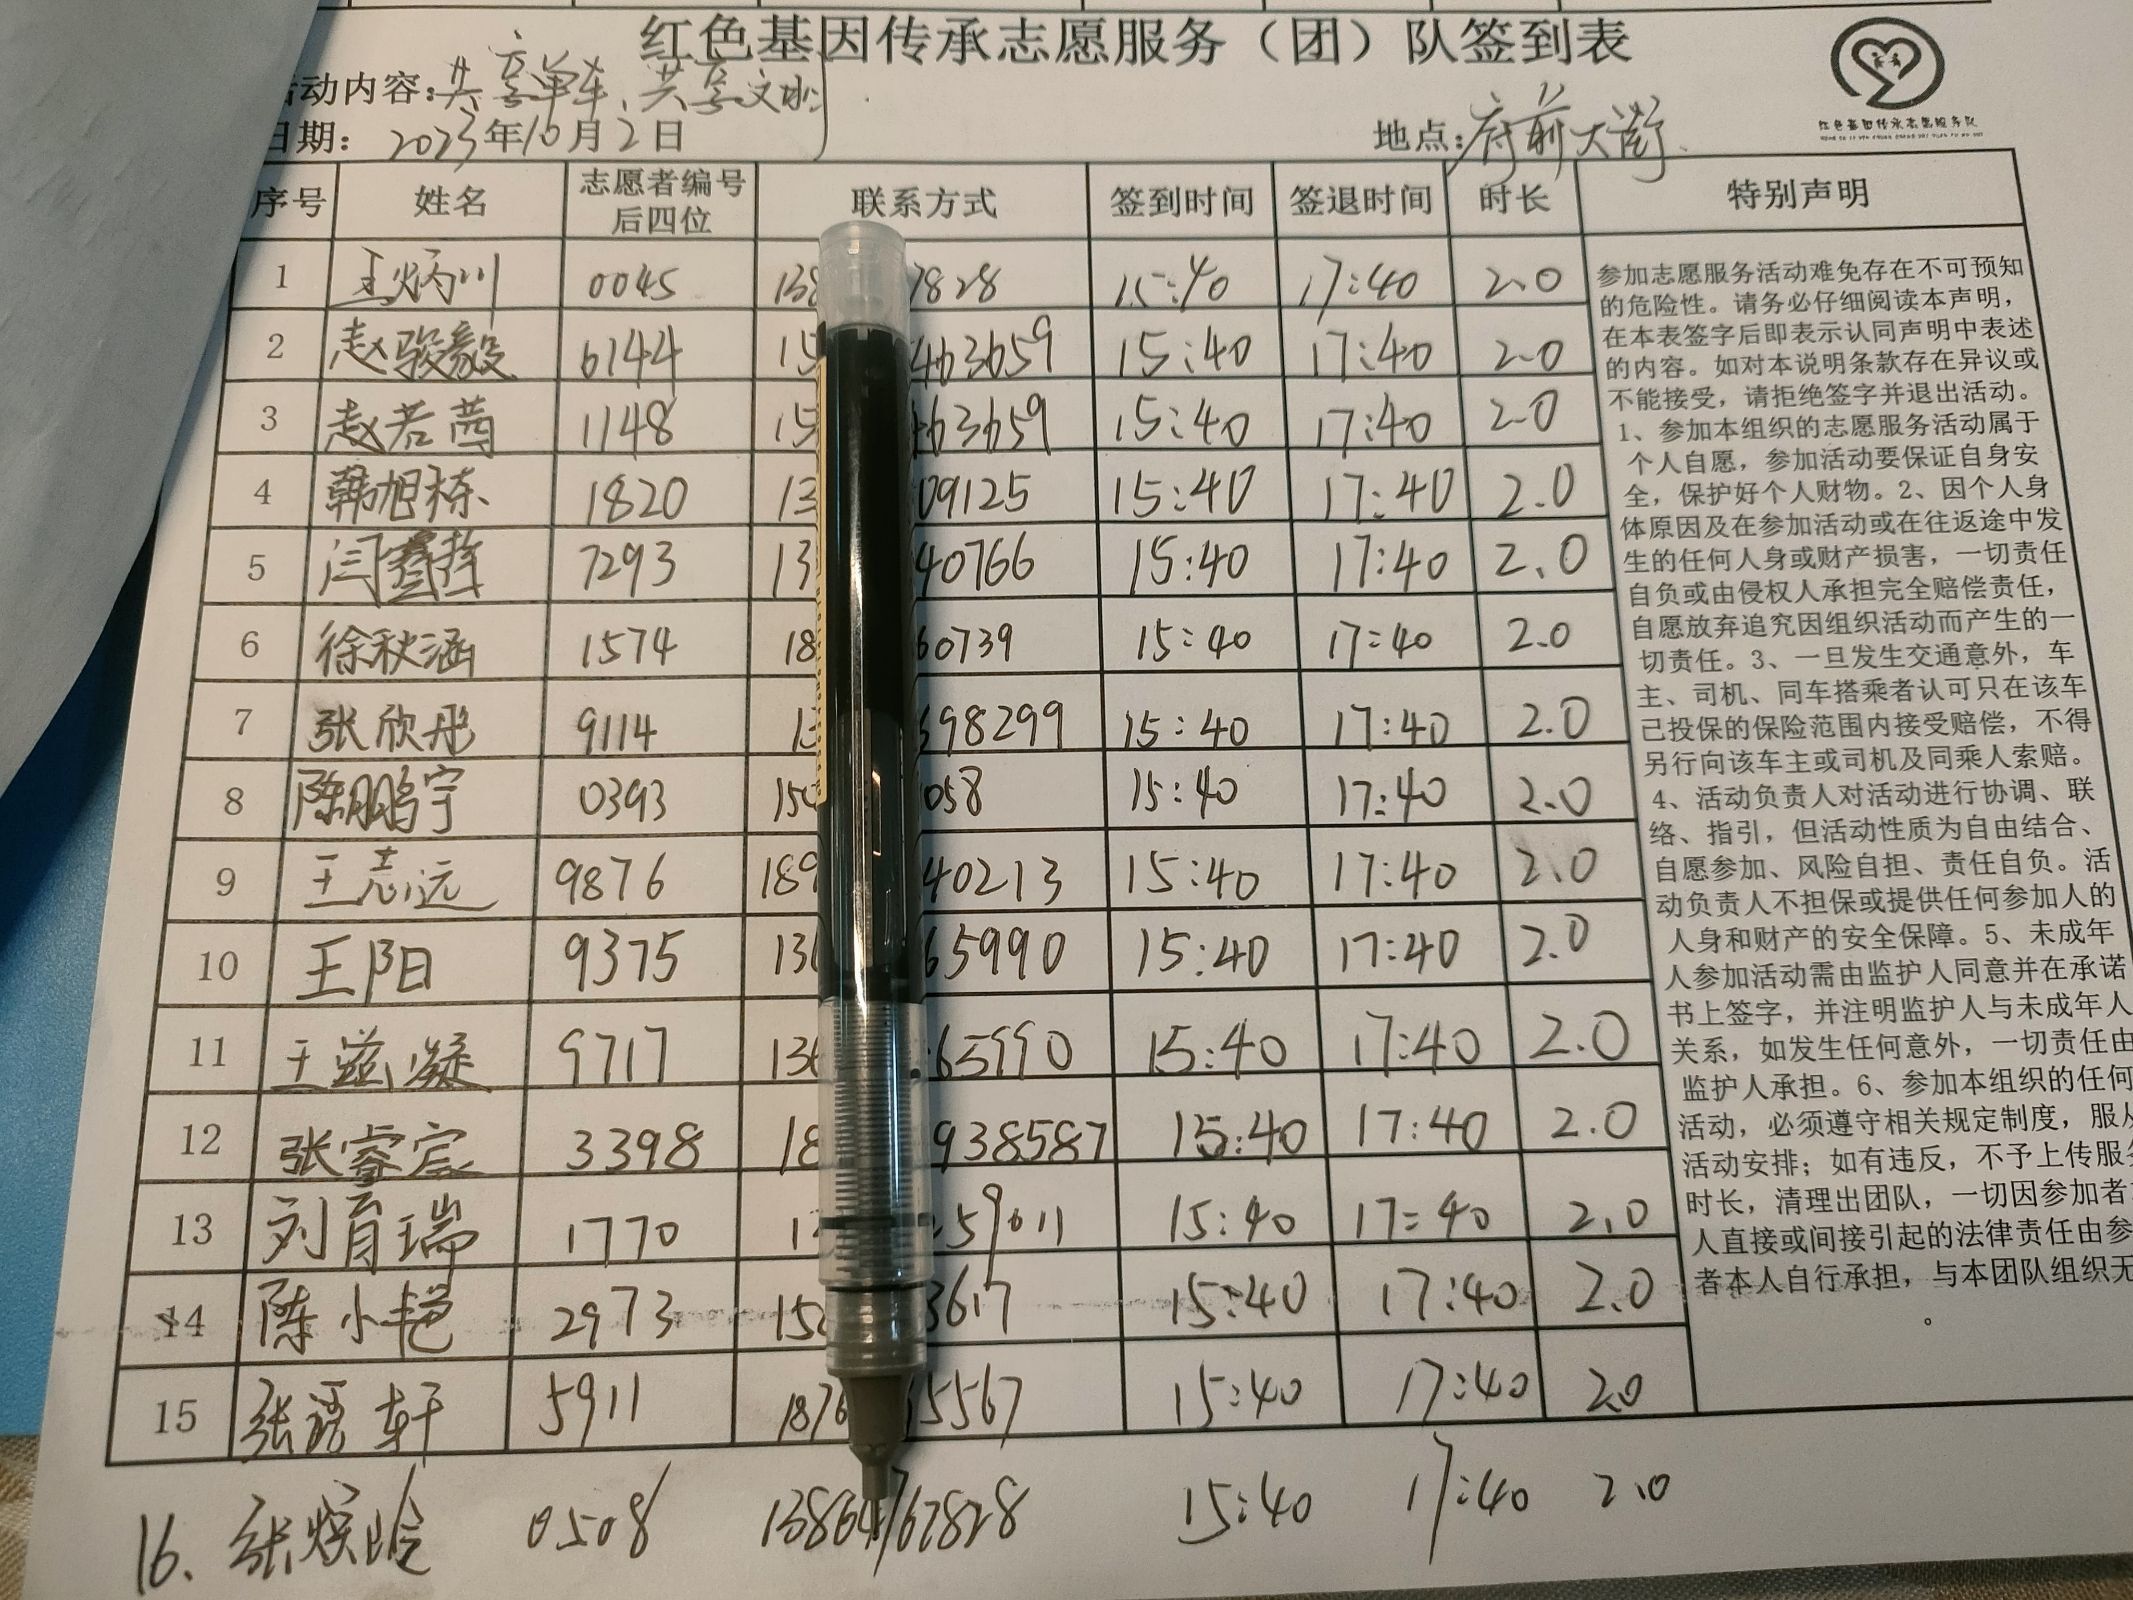 红色基因传承志愿服务（团）队签到表
活动内容：共享单车、共享文明
日期：2023年10月2日 地点：府前大街
红色基因传承志愿服务队
序号 姓名 志愿者编号后四位 联系方式 签到时间 签退时间 时长 特别声明
1 王炳川 0045 138 7828 15:40 17:40 2.0
2 赵骏毅 6144 15 463659 15:40 17:40 2.0
3 赵若茜 1148 15 463659 15:40 17:40 2.0
4 韩旭栋 1820 13 09125 15:40 17:40 2.0
5 闫鑫哲 7293 13 40766 15:40 17:40 2.0
6 徐秋涵 1574 18 60739 15:40 17:40 2.0
7 张欣彤 9114 13 698299 15:40 17:40 2.0
8 陈鹏宇 0393 150 058 15:40 17:40 2.0
9 王志远 9876 189 40213 15:40 17:40 2.0
10 王阳 9375 136 65990 15:40 17:40 2.0
11 王滋凝 9717 136 65990 15:40 17:40 2.0
12 张睿宸 3398 18 938587 15:40 17:40 2.0
13 刘育瑞 1770 1 59011 15:40 17:40 2.0
14 陈小艳 2973 150 3617 15:40 17:40 2.0
15 张语轩 5911 1876 15567 15:40 17:40 2.0
16. 张 0508 13864762828 15:40 17:40 2.0
参加志愿服务活动难免存在不可预知
的危险性。请务必仔细阅读本声明，
在本表签字后即表示认同声明中表述
的内容。如对本说明条款存在异议或
不能接受，请拒绝签字并退出活动。
1、参加本组织的志愿服务活动属于
个人自愿，参加活动要保证自身安
全，保护好个人财物。2、因个人身
体原因及在参加活动或在往返途中发
生的任何人身或财产损害，一切责任
自负或由侵权人承担完全赔偿责任，
自愿放弃追究因组织活动而产生的一
切责任。3、一旦发生交通意外，车
主、司机、同车搭乘者认可只在该车
已投保的保险范围内接受赔偿，不得
另行向该车主或司机及同乘人索赔。
4、活动负责人对活动进行协调、联
络、指引，但活动性质为自由结合、
自愿参加、风险自担、责任自负。活
动负责人不担保或提供任何参加人的
人身和财产的安全保障。5、未成年
人参加活动需由监护人同意并在承诺
书上签字，并注明监护人与未成年人
关系，如发生任何意外，一切责任由
监护人承担。6、参加本组织的任何
活动，必须遵守相关规定制度，服从
活动安排；如有违反，不予上传服务
时长，清理出团队，一切因参加者
人直接或间接引起的法律责任由参
者本人自行承担，与本团队组织无
。